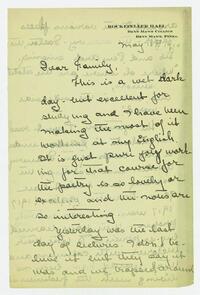 ROCKEFELLER HALL
BRYN MAWR COLLEGE
BRYN MAWR, PENNA.
May
Dear Family,
This is a wet dark
day - but excellent for
studying and I have been
making the most of it
working at my English
It is just pure joy work
ing for that course for
the poetry is so lovely or
and the notes are
so interesting
Yesterday was the last
day of lectures I don't be-
lieve it but they say it
was and we trapsed around